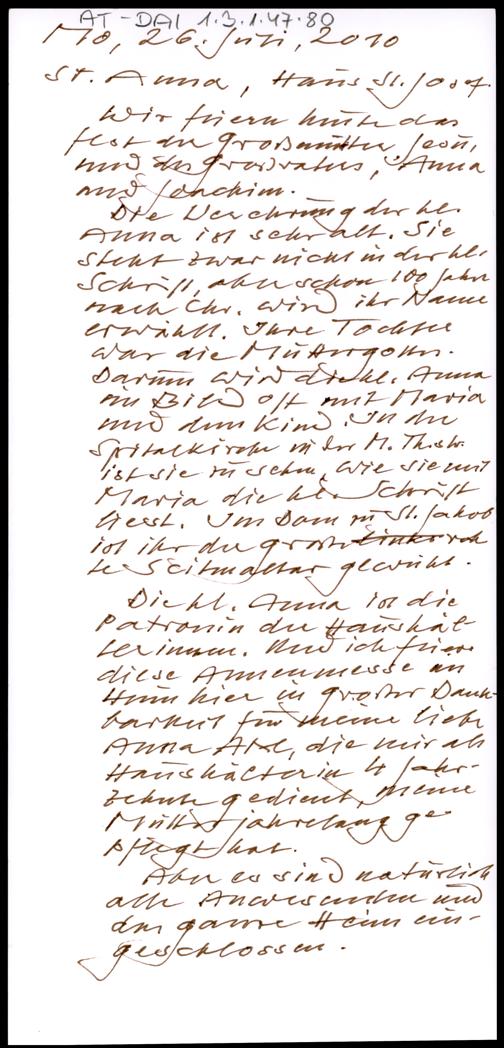 AT-DAI 1.3.1.47.80
Mo, 26. Juli, 2010
St. Anna, Haus St. Josef.
Wir feiern heute das
Fest der Großmutter Jesu,
und des Großvaters, Anna
und Joachim.
Die Verehrung der hl.
Anna ist sehr alt. Sie
steht zwar nicht in der hl.
Schrift, aber schon 100 Jahre
nach Chr. wird ihr Name
erwähnt. Ihre Tochter
war die Muttergottes.
Darum wird die hl. Anna
im Bild oft mit Maria
und dem Kind. In der
Spitalkirche in der M. Th. str.
ist sie zu sehen, wie sie mit
Maria die hl. Schrift
liest. Im Dom zu St. Jakob
ist ihr der große linke rech
te Seitenaltar geweiht.
Die hl. Anna ist die
Patronin der Haushäl-
terinnen. Und ich feiere
diese Annenmesse im
Heim hier in großer Dank-
barkeit für meine liebe
Anna, die mir als
Haushälterin 4 Jahr-
zehnte gedient, meine
Mutter jahrelang ge-
pflegt hat.
Aber es sind natürlich
alle Anwesenden und
das ganze Heim ein-
geschlossen.